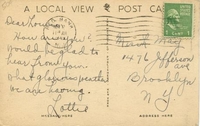 A LOCAL VIEW
POST CARD
Dear Lou,
How are you? I
would be glad to
hear from you.
What glorious weather
we are having.
Lottie
1476 Jefferson
ave
Brooklyn
N Y
MESSAGE HERE
ADDRESS HERE